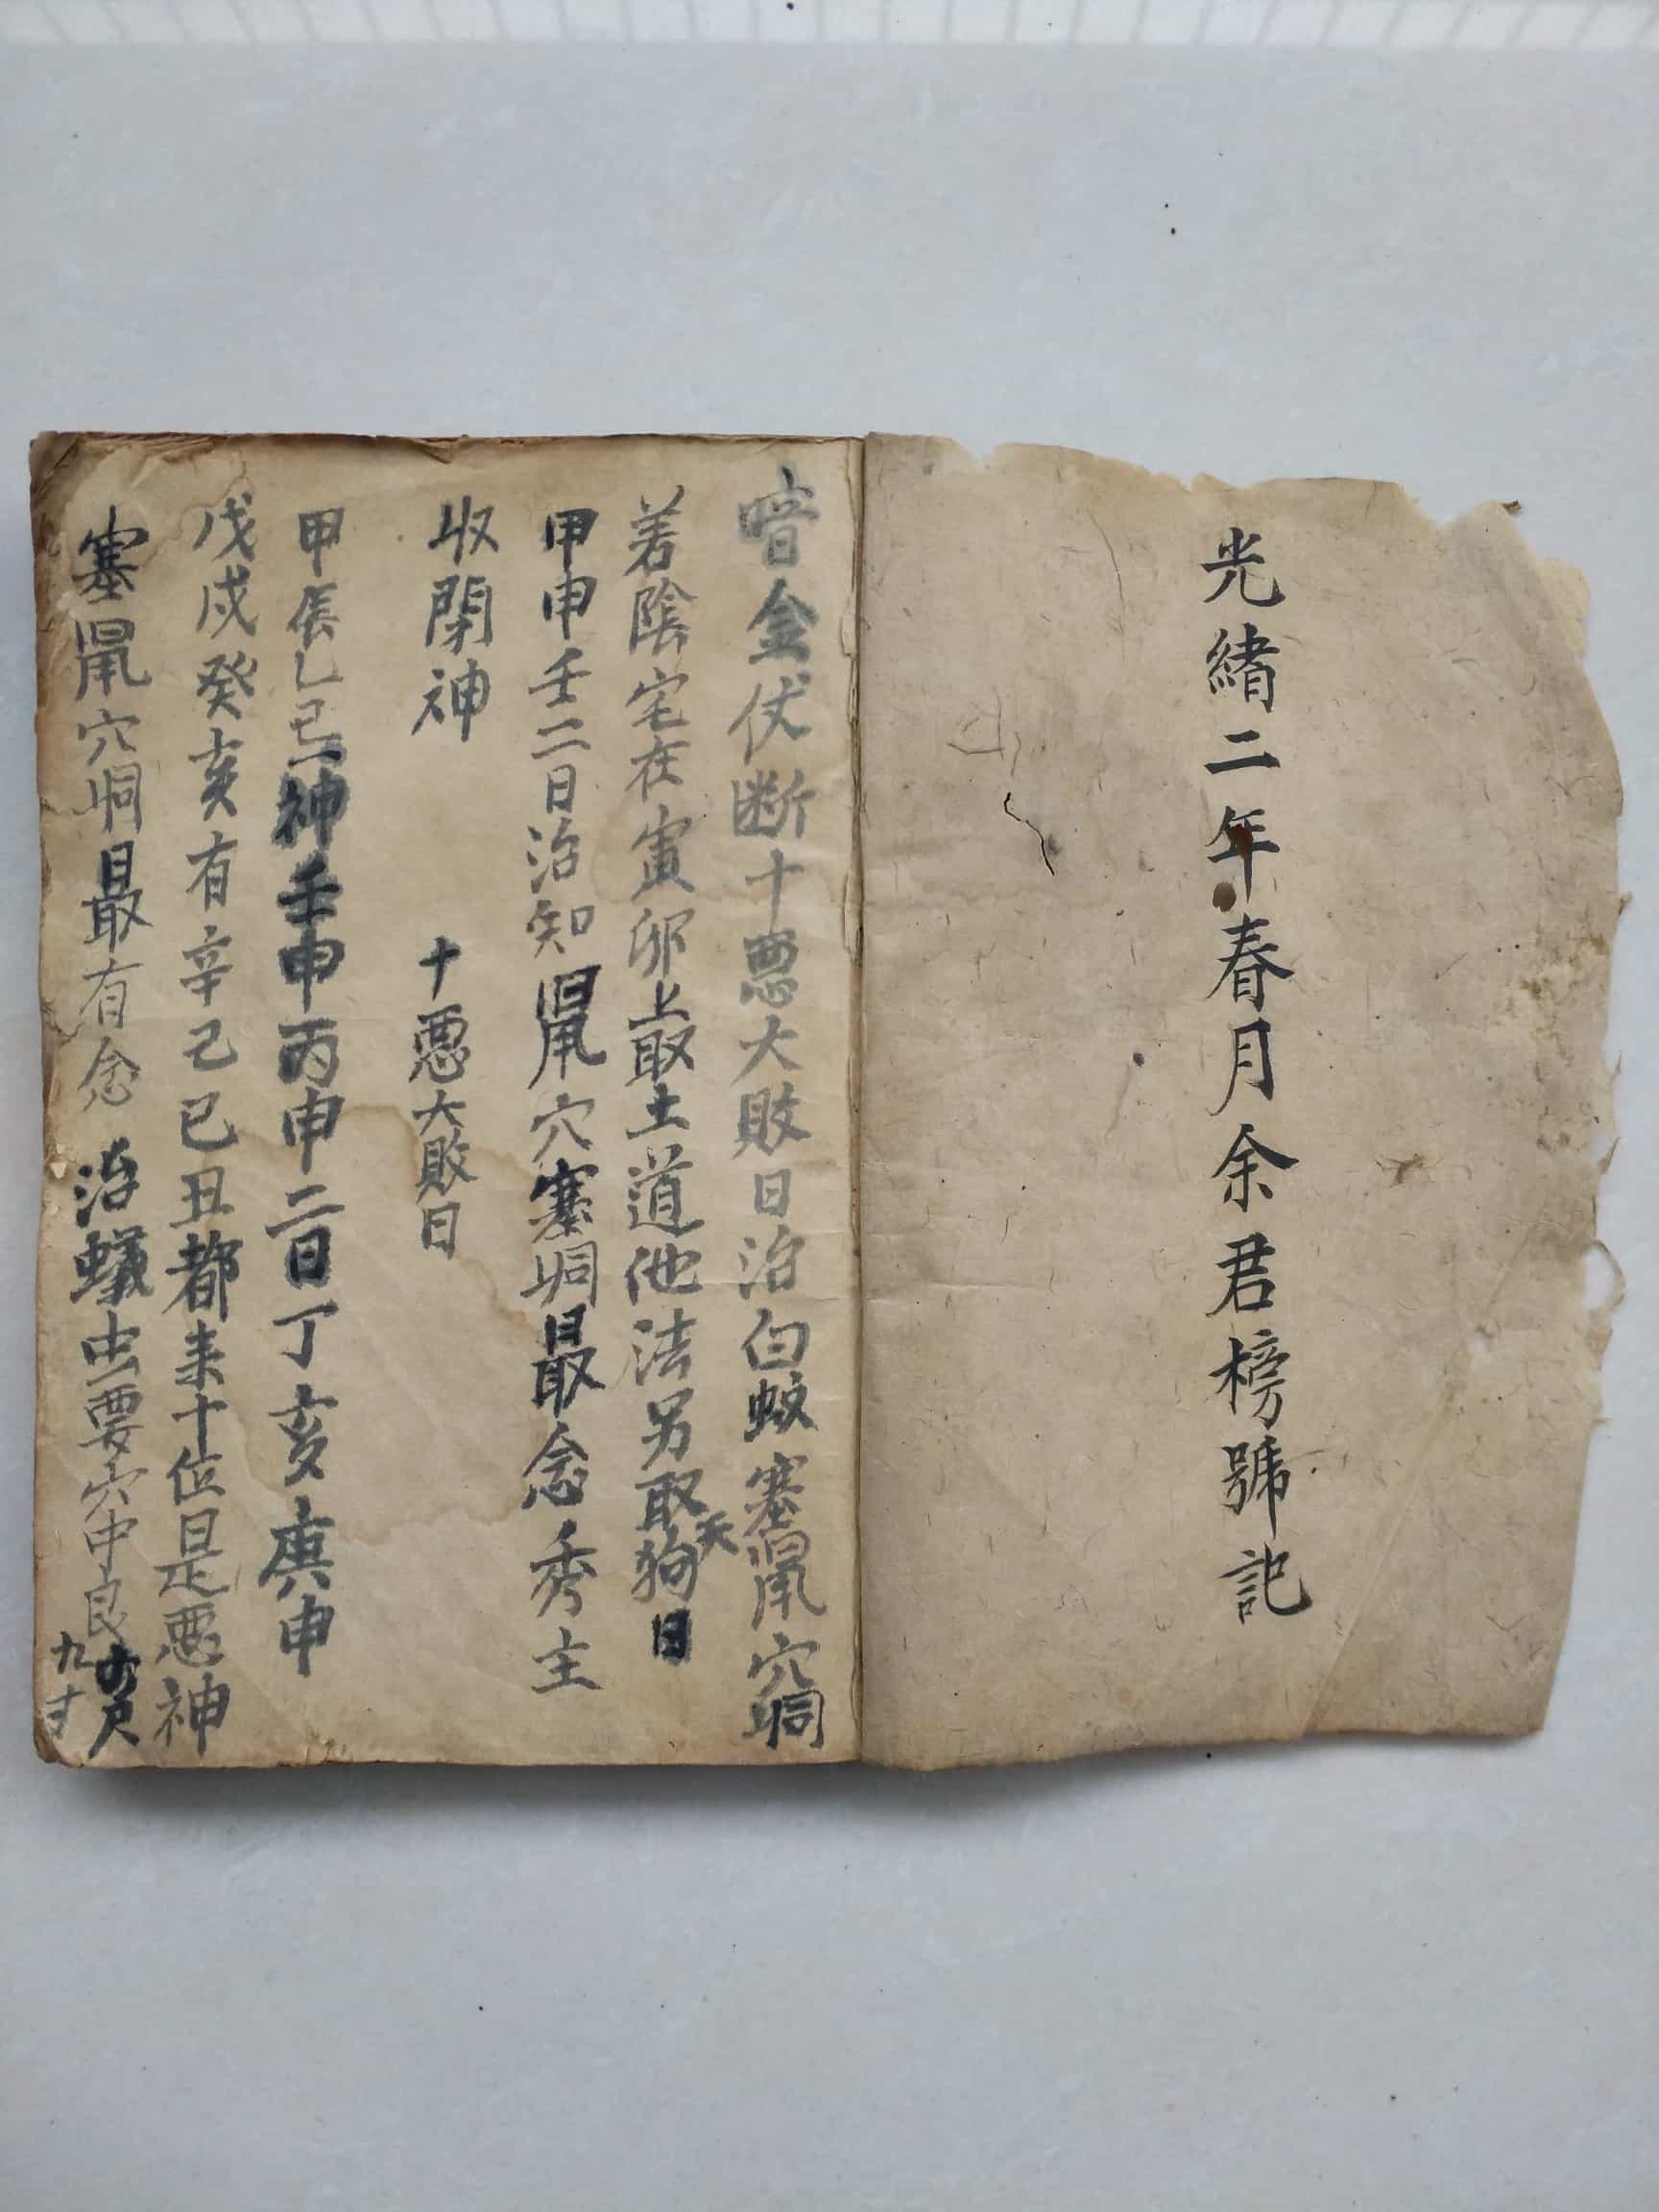 光緒二年春月余君榜號記
暗金伏断十惡大敗日治白蚁塞鼠穴垌
若陰宅在寅卯上取土道他法另取天狗日
甲申壬二日治知鼠穴塞垌最念秀主
收閉神
十惡大敗日
甲辰乙巳神壬申丙申二日丁亥庚申
戊戌癸亥有辛己巳丑都来十位是惡神
塞鼠穴垌最有念 治蟻虫要穴中良
九寸